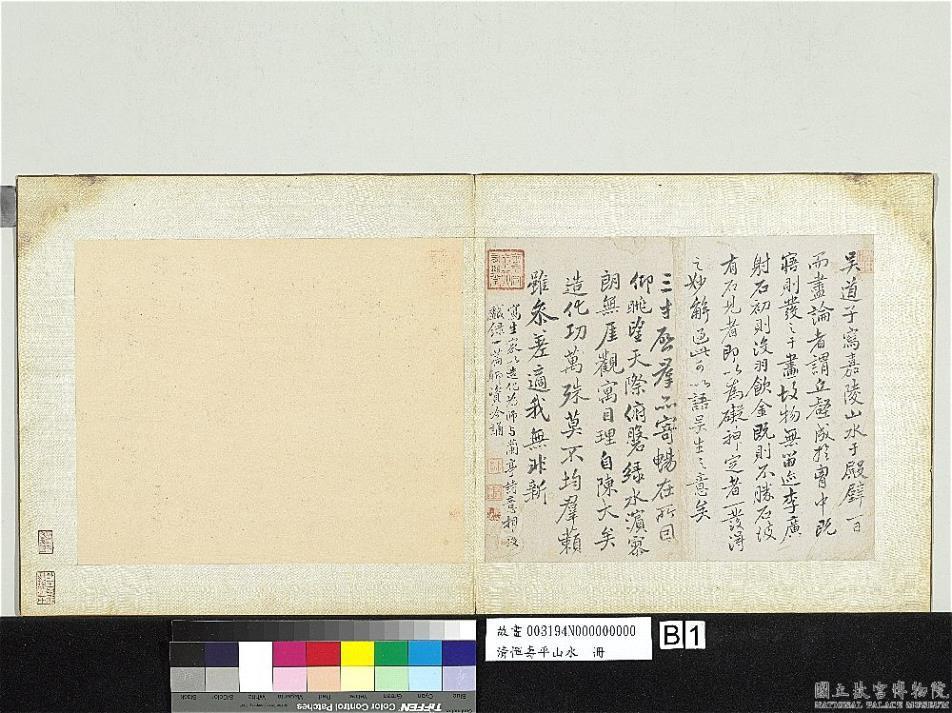 吳道子寫嘉陵山水于殿壁一日
而盡論者謂丘壑成於胷中既
寤則發之于畫故物無留迹李廣
射石初則沒羽飲金既則不勝石彼
有石見者即以為礙神定者一發得
之妙解過此可以語吴生之意矣
三才啟羣品寄暢在所因
仰眺望天際俯磐綠水濱寥
朗無厓觀寓目理自陳大矣
造化功萬殊莫不均羣籟
雖參差適我無非新
寫生家以造化為師與蘭亭詩意相
錄一篇
故畫 003194N000000000
B1
清 山水 冊
Blue
Cyan
Green
Yellow
Red
Magenta
White
3/Color
Black
TIFFEN Color Control Patches
國立故宮博物院
NATIONAL PALACE MUSEUM